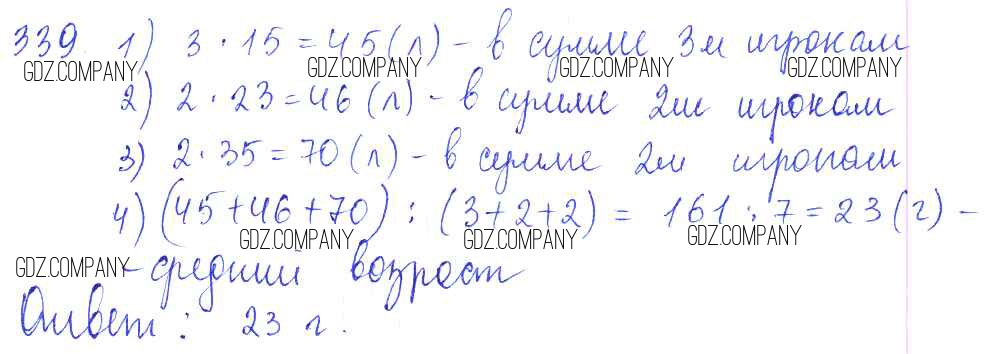 339. 1) 3 · 15 = 45 (л) – в сумме 3м игрокам
GDZ.COMPANY GDZ.COMPANY GDZ.COMPANY GDZ.COMPANY
2) 2 · 23 = 46 (л) – в сумме 2м игрокам
3) 2 · 35 = 70 (л) – в сумме 2м игрокам
4) (45 + 46 + 70) : (3 + 2 + 2) = 161 : 7 = 23 (г) –
GDZ.COMPANY GDZ.COMPANY GDZ.COMPANY
GDZ.COMPANY – средний возраст
Ответ : 23 г.